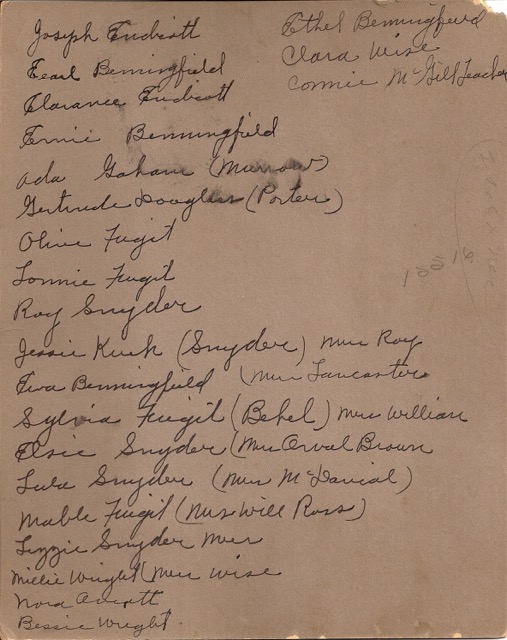 Joseph Endicott
Earl Benningfield
Clarance Endicott
Ernie Benningfield
Ada Gaham (Murrow)
Gertrude Douglass (Porter)
Olive Fugit
Lonnie Fugit
Roy Snyder
Jessie Kirk (Snyder) Mrs Roy
Eva Benningfield (Mrs Lancaster
Sylvia Fugit (Bekel) Mrs William
Elsie Snyder (Mrs Orval Brown
Lula Snyder (Mrs McDanial)
Mable Fugit (Mrs Will Ross)
Lizzie Snyder Mrs
Millie Wright (Mrs Wise
Nora
Bessie Wright
Ethel Benningfield
Clara Wise
Connie McGill Teacher